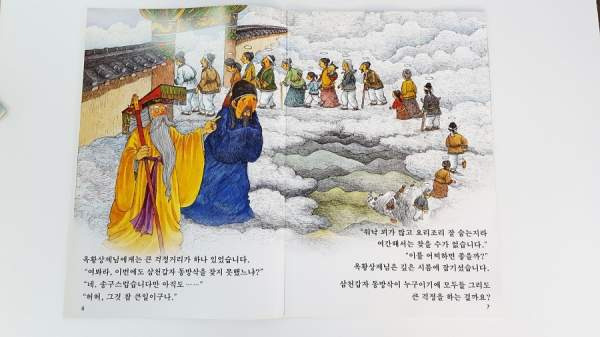 옥황상제님에게는 큰 걱정거리가 하나 있었습니다.
"여봐라, 이번에도 삼천갑자 동방삭을 찾지 못했느냐?"
"네, 송구스럽습니다만 아직도……"
"허허, 그것 참 큰일이구나."
6
"워낙 꾀가 많고 요리조리 잘 숨는지라
여간해서는 찾을 수가 없습니다."
"이를 어찌하면 좋을까?"
옥황상제님은 깊은 시름에 잠기셨습니다.
삼천갑자 동방삭이 누구이기에 모두들 그리도
큰 걱정을 하는 걸까요?
7